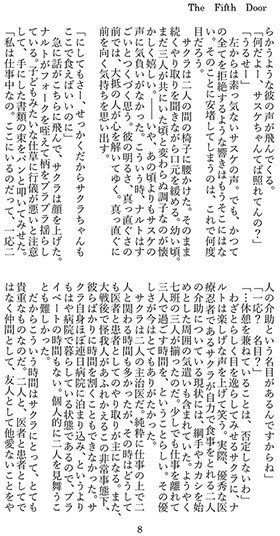 The Fifth Door
らかうような彼の声が飛んでくる。
「何だよー、サスケちゃんてば照れてんの？」
「うるせー」
そこからは素っ気ないサスケの声。でも、かつて
の全てを拒絶するような響きはもうそこにはな
い。そのことに安堵してしまうのは、これで何度
目だろうか。
サクラは二人の間の椅子に腰かけた。そのまま
続くやり取りを聞きながら口元を緩める。幼い頃、
まだ三人が共にいた頃と変わらぬ調子なのが懐
かしく嬉しい。――いや、あの頃よりもサスケの
声に気負いがない。こういう時、ナルトはす
ごいとつくづく思う。彼の明るさ、真っ直ぐさの
前では、大抵の人が心を解いてゆく。真っ直ぐに
前を向く気持ちを思い出す。
「にしてもさー、せっかくだからサクラちゃんも
ここで食えばいいのに」
急に話がこちらに飛んで、サクラは顔を上げた。
ナルトがフォークを咥えて柄をプラプラ揺らし
ている。子どもみたいな仕草に行儀が悪いと注意
して、手にした書類の束をバンと叩いてみせた。
「私は仕事中なの。ここにいるのだって、一応二
人の介助という名目があるんですからね」
「一応？ 名目？」
「…休憩を兼ねていることは、否定しないわ」
わざとらしく目を逸らしてみせるサクラに、ナ
ルトは楽しげな声を上げて笑う。実際、優秀な医
療忍者であるサクラが自力で食事をとれる二人
の介助についている現状には、綱手やカカシを始
めとした周囲の気遣いも含まれていた。ようやく
七班の三人が揃ったのだ。少しでも仕事を離れて
三人で過ごす時間を、ということらしい。その優
しさが今はとてもありがたかった。
サクラは二人の主治医だ。純粋に仕事の上で二
人と関わる時間も多かったが、その時はどうして
も医者と患者としてのやり取りが主になる。また、
大戦後で怪我人があふれかえるこの非常事態下、
彼らばかりに時間を割くこともできなかった。サ
クラ自身ほぼ連日病院に泊まり込み、というより
もはや病院で暮らしている状態であるので、プラ
イベートの時間もない。個人的に二人を見舞うこ
とも難しかった。
だからこういう時間はサクラにとって、とても
貴重なものなのだ。二人と、医者と患者としてで
はなく仲間として、友人として他愛ないことをや
8